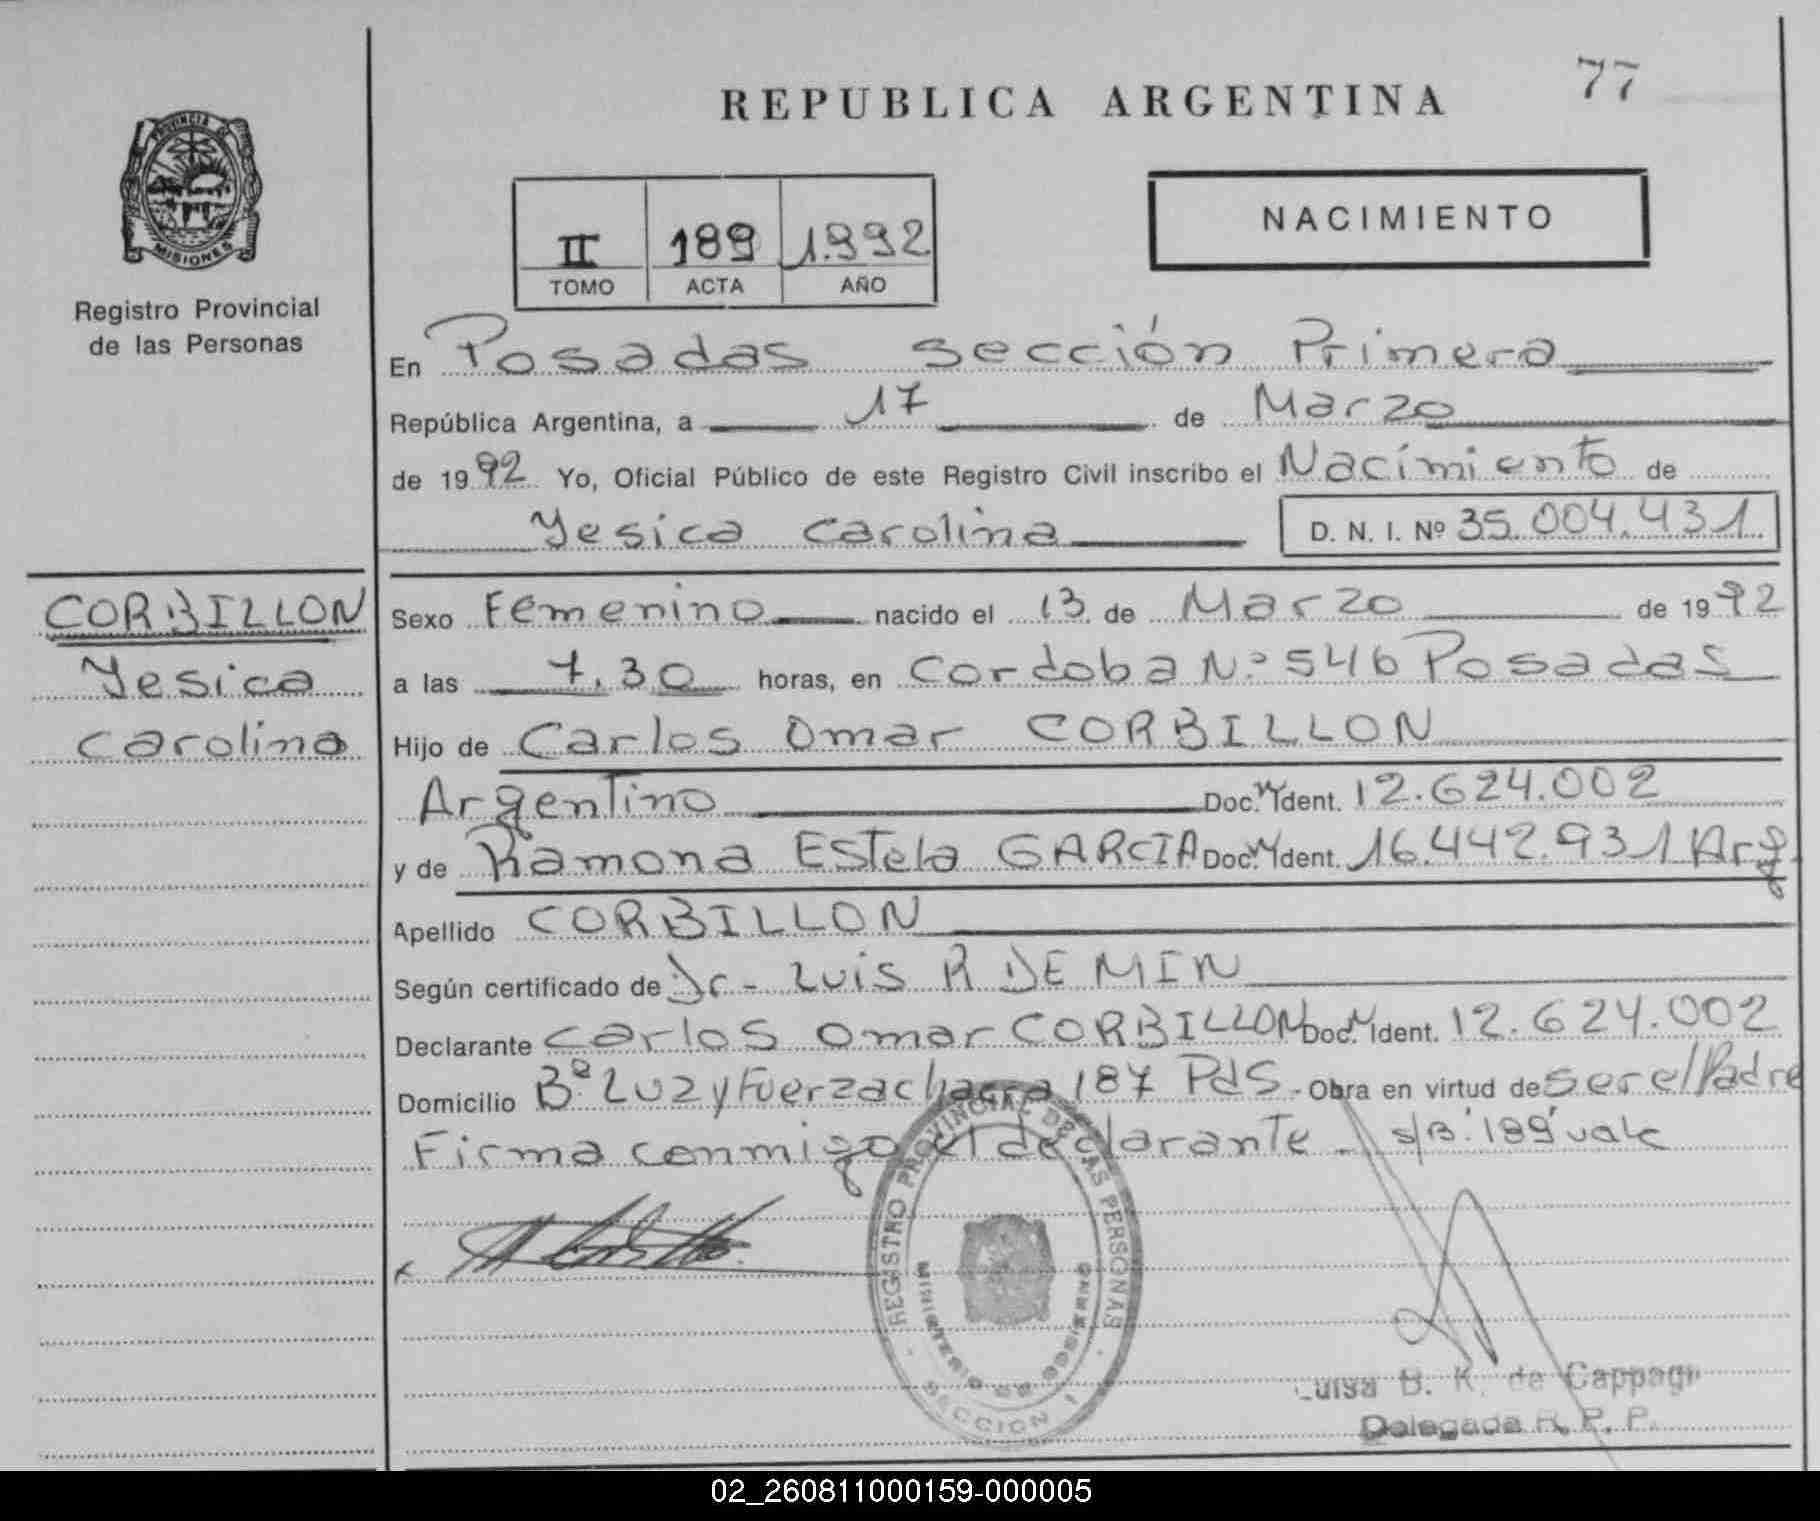 77
REPUBLICA ARGENTINA
PROVINCIA DE
MISIONES
Registro Provincial
de las Personas
NACIMIENTO
II 189 1.992
TOMO ACTA AÑO
En Posadas sección Primera
República Argentina, a 17 de Marzo
de 1992 Yo, Oficial Público de este Registro Civil inscribo el Nacimiento de
Yesica Carolina D. N. I. Nº 35.004.431
CORBILLON
Yesica
Carolina
Sexo Femenino nacido el 13 de Marzo de 1992
a las 7,30 horas, en Cordoba Nº 546 Posadas
Hijo de Carlos Omar CORBILLON
Argentino Doc. Ident. 12.624.002
y de Ramona Estela GARCIA Doc. Ident. 16.442.931 Arg.
Apellido CORBILLON
Según certificado de Dr - Luis R DE MIN
Declarante Carlos Omar CORBILLON Doc. Ident. 12.624.002
Domicilio Bº Luz y Fuerza chacra 187 Pds. Obra en virtud de ser el Padre
Firma conmigo el declarante - s/B: 189 vale
REGISTRO PROVINCIAL DE LAS PERSONAS
MINISTERIO DE GOBIERNO
SECCION 1
Luisa B. K. de
Delegada R. P. P.
02_260811000159-000005